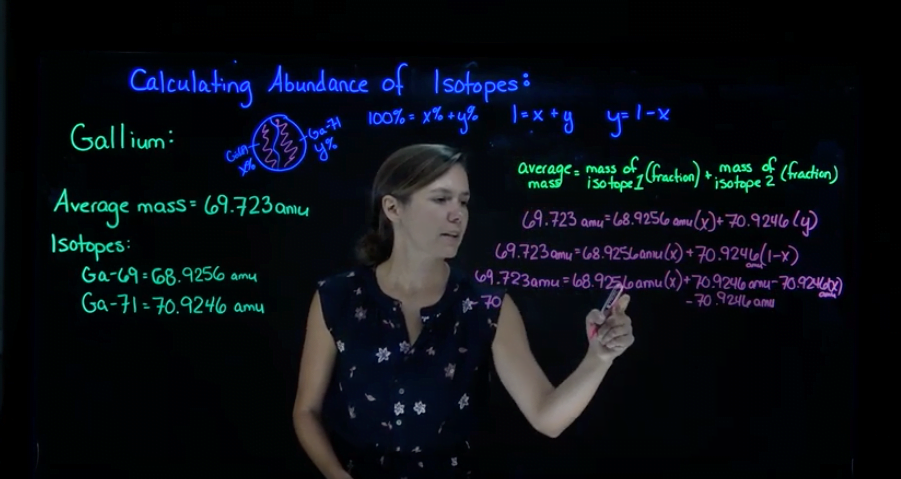 Calculating Abundance of Isotopes:
100% = x% + y%   1 = x + y   y = 1 - x
Gallium:
Ga-71
y%
x%
average mass = mass of isotope 1 (fraction) + mass of isotope 2 (fraction)
Average mass = 69.723 amu
69.723 amu = 68.9256 amu (x) + 70.9246 (y)
Isotopes:
69.723 amu = 68.9256 amu (x) + 70.9246 amu (1-x)
Ga-69 = 68.9256 amu
69.723 amu = 68.9256 amu (x) + 70.9246 amu - 70.9246 (x) amu
Ga-71 = 70.9246 amu
-70   -70.9246 amu